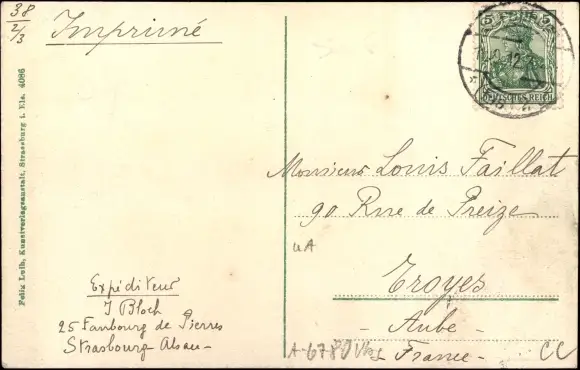 38
2/3
Imprimé
DEUTSCHES REICH
Felix Luib, Kunstverlagsanstalt, Strassburg i. Els. 4086
Monsieur Louis Faillat
90 Rue de Preize
Troyes
- Aube -
- France -
Expéditeur
J Bloch
25 Faubourg de Pierres
Strasbourg Alsace
uA
A-6780
CC